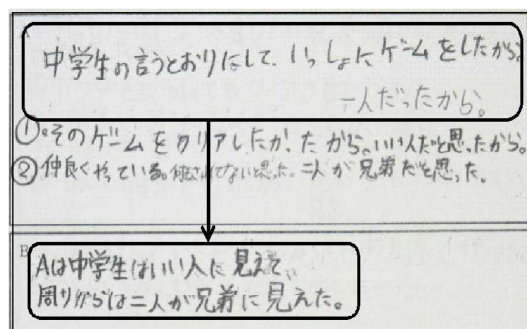 A
中学生の言うとおりにして、いっしょにゲームをしたから。
一人だったから。
①。そのゲームをクリアしたかったから。いい人だと思ったから。
②仲良くやっている。 と思った。二人が兄弟だと思った。
B
Aは中学生はいい人に見えて、
周りからは二人が兄弟に見えた。